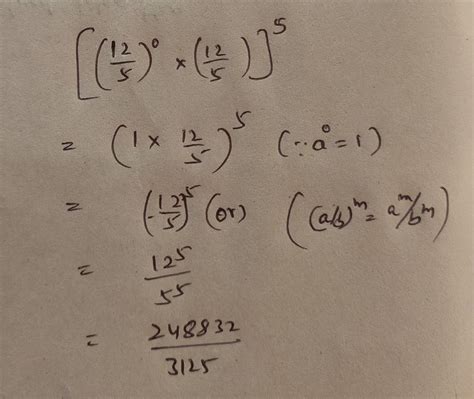 [(12/5)⁰ × (12/5)]⁵
= (1 × 12/5)⁵ (∵ a⁰ = 1)
= (12/5)⁵ (or) ((a/b)ᵐ = aᵐ/bᵐ)
= 12⁵/5⁵
= 248832/3125